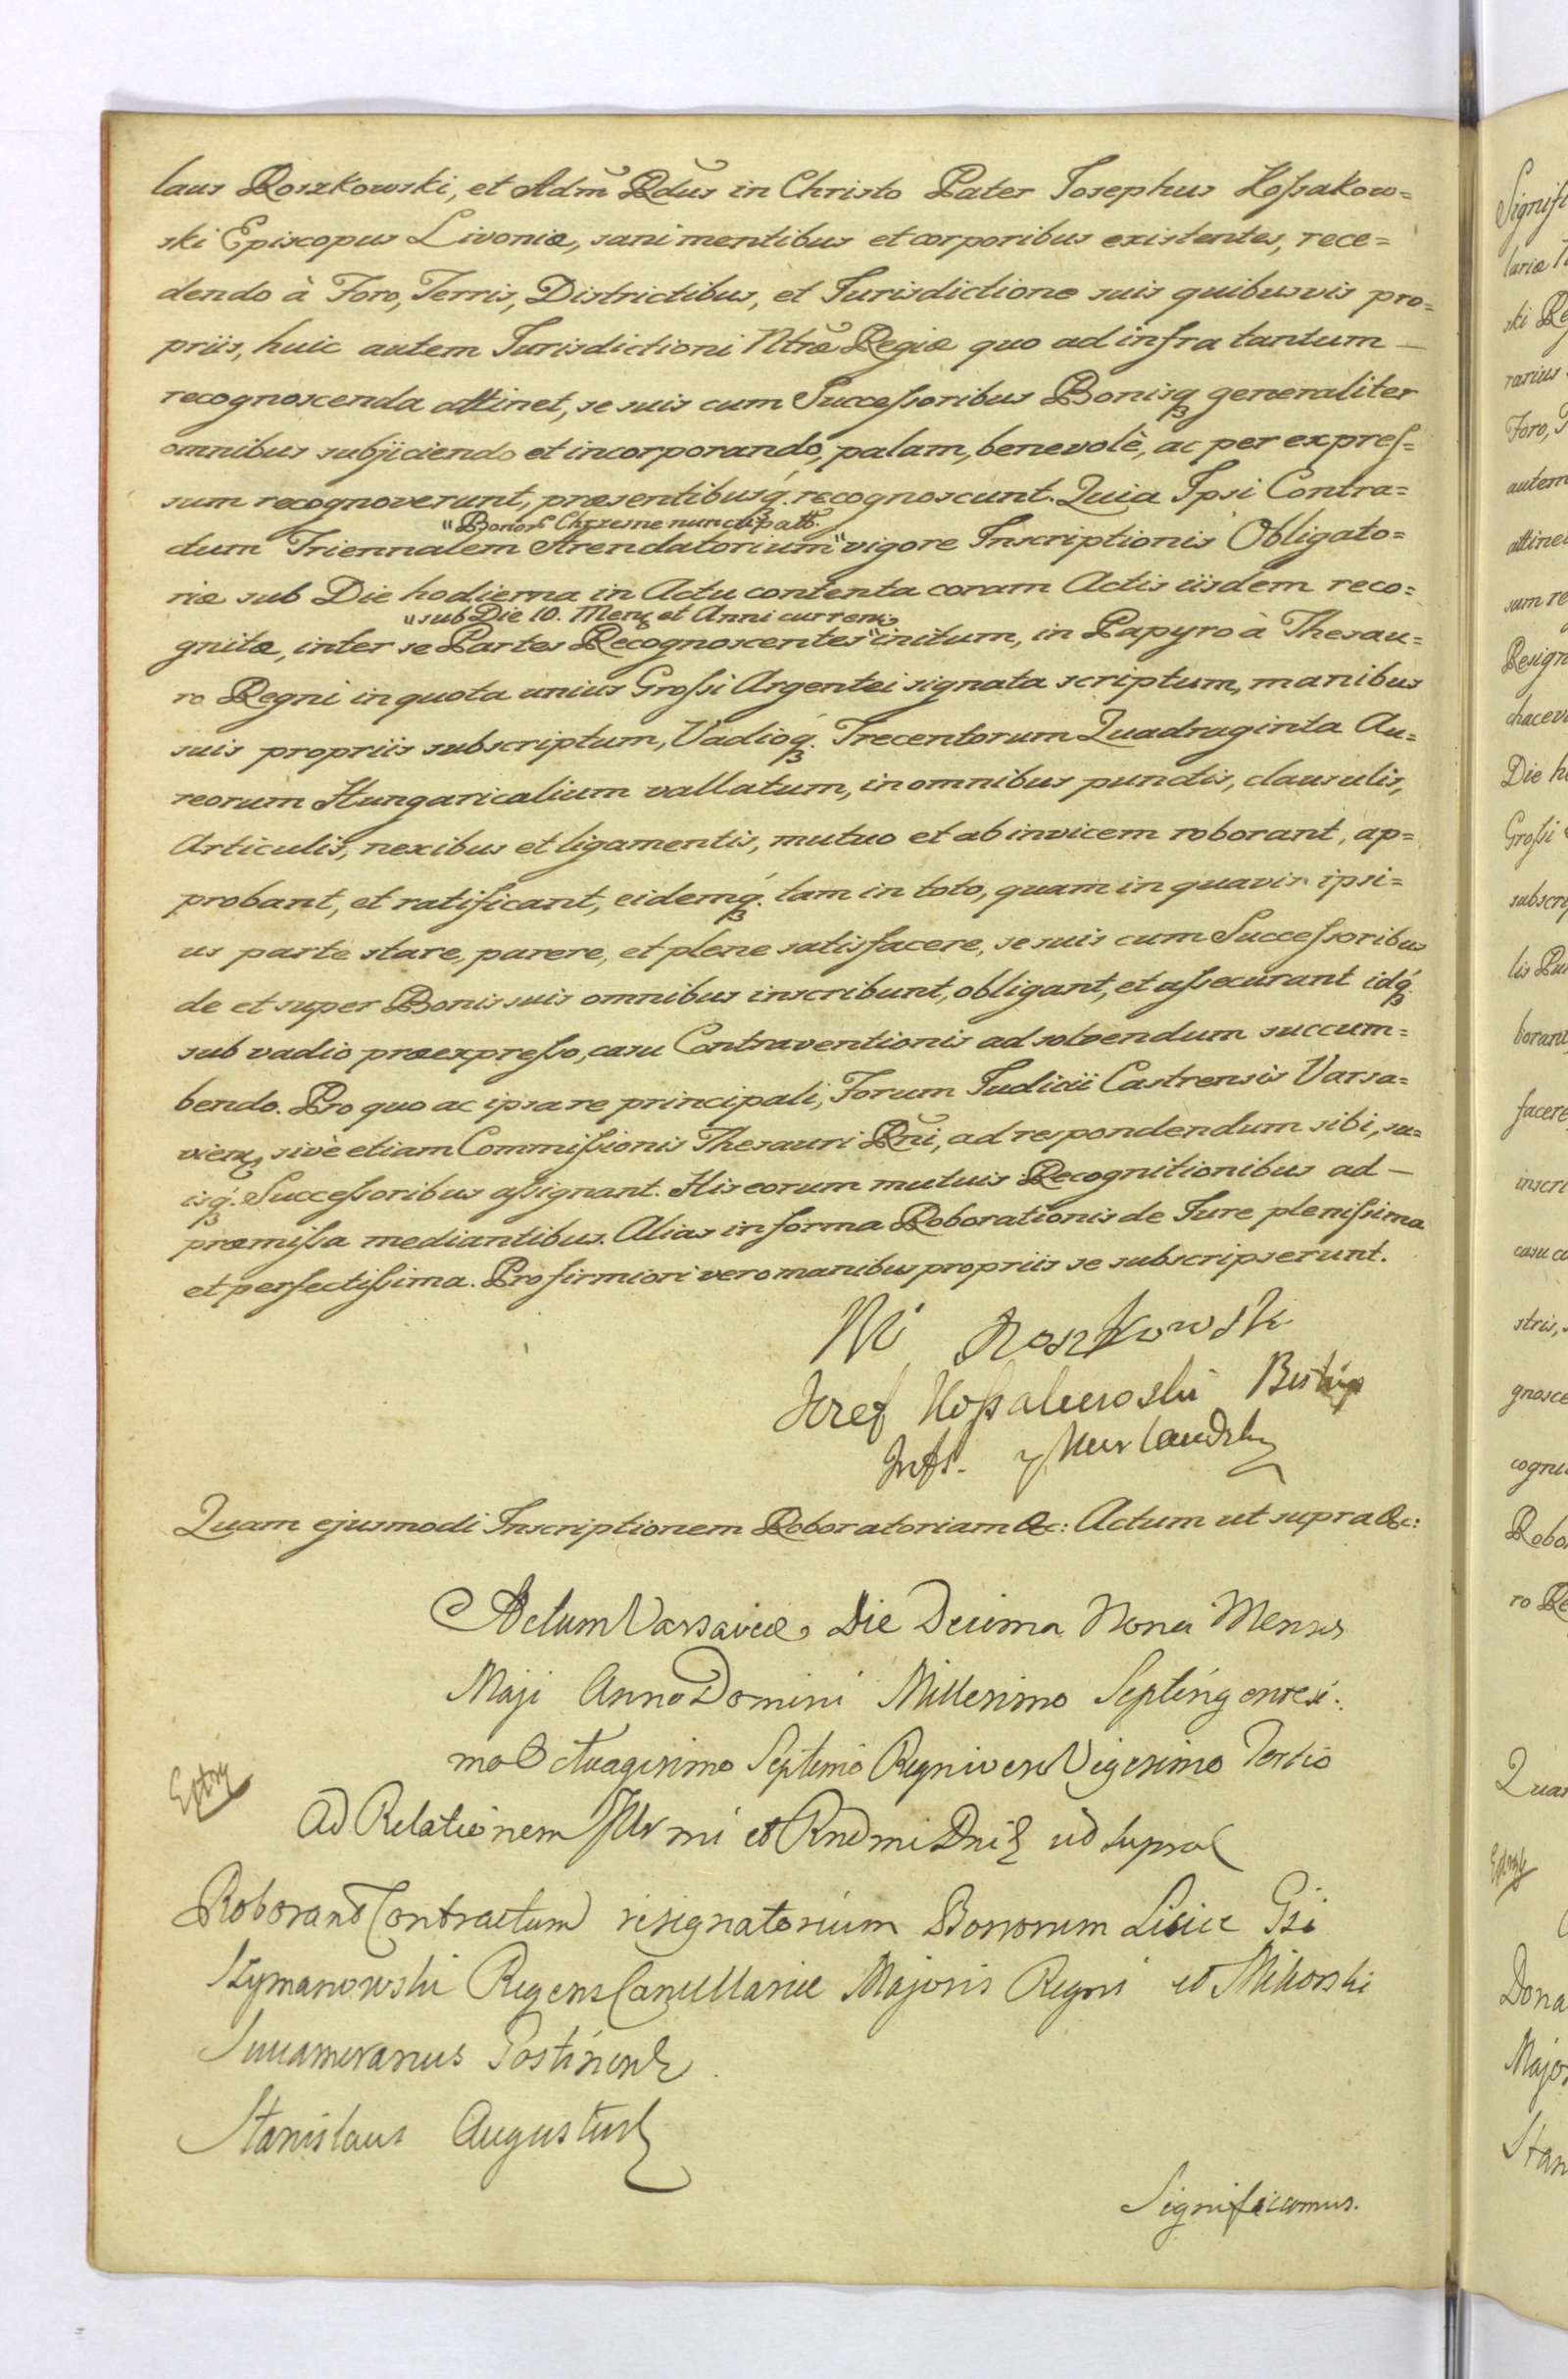 laus Roszkowski, et Adm̃ Rdus in Christo Pater Josephus Kossakow=
ski Episcopus Livoniæ, sani mentibus et corporibus existentes, rece=
dendo à Foro, Terris, Districtibus, et Jurisdictione suis quibusvis pro=
priis, huic autem Jurisdictioni Ntræ Regiæ quo ad infra tantum —
recognoscenda attinet, se suis cum Successoribus Bonisq́ generaliter
omnibus subjiciendo et incorporando, palam, benevolè, ac per expres=
sum recognoverunt, præsentibusq́. recognoscunt. Quia Ipsi Contra=
"Bonor Chrzesne nuncupatt.
ctum Triennalem Arendatorium" vigore Inscriptionis Obligato=
riæ sub Die hodierna in Actu contenta coram Actis iisdem reco=
"sub Die 10. Mens et Anni curren:
gnitæ, inter se Partes Recognoscentes" initum, in Papyro à Thesau=
ro Regni in quota unius Grossi Argentei signata scriptum, manibus
suis propriis subscriptum, Vadioq́. Trecentorum Quadraginta Au=
reorum Hungaricalium vallatum, in omnibus punctis, clausulis,
Articulis, nexibus et ligamentis, mutuo et ab invicem roborant, ap=
probant, et ratificant, eidemq́. tam in toto, quam in quavis ipsi=
us parte stare, parere, et plene satisfacere, se suis cum Successoribus
de et super Bonis suis omnibus inscribunt, obligant, et assecurant idq́
sub vadio præexpresso, casu Contraventionis ad solvendum succum=
bendo. Pro quo ac ipsa re principali, Forum Judicii Castrensis Varsa=
viens, sivè etiam Commissionis Thesauri Rñi, ad respondendum sibi, su=
isq́. Successoribus assignant. His eorum mutuis Recognitionibus ad —
præmissa mediantibus. Alias in forma Roborationis de Jure plenissima
et perfectissima. Pro firmiori vero manibus propriis se subscripserunt.
Roszkowski
Jozef Kossakowski Biskup
Infl. y Kurlandzky
Quam ejusmodi Inscriptionem Roboratoriam &c: Actum ut supra &c:
Actum Varsaviæ Die Decima Nona Mensis
Maji Anno Domini Millesimo Septingentesi:
mo Octuagesimo Septimo Regni vero Vigesimo Tertio
Ad Relationem Illrmi et Rndmi Dni ut supra
Roborant Contractum resignatorium Bonorum Gsi
Szymanowski Regens Cancellariæ Majoris Regni et Mikorski
Succamerarius Gostinens
Stanislaus Augustus
Significamus.
Signifi
lariæ
ski Re
rarius
Foro, T
autem
attinet
sum re
Resign
chacevi
Die h
Grossi
subscri
lis Pu
borant
facere
inscri
casu co
stris,
gnosce
cogni
Robo
ro Re
Qua
Dona
Major
Stan